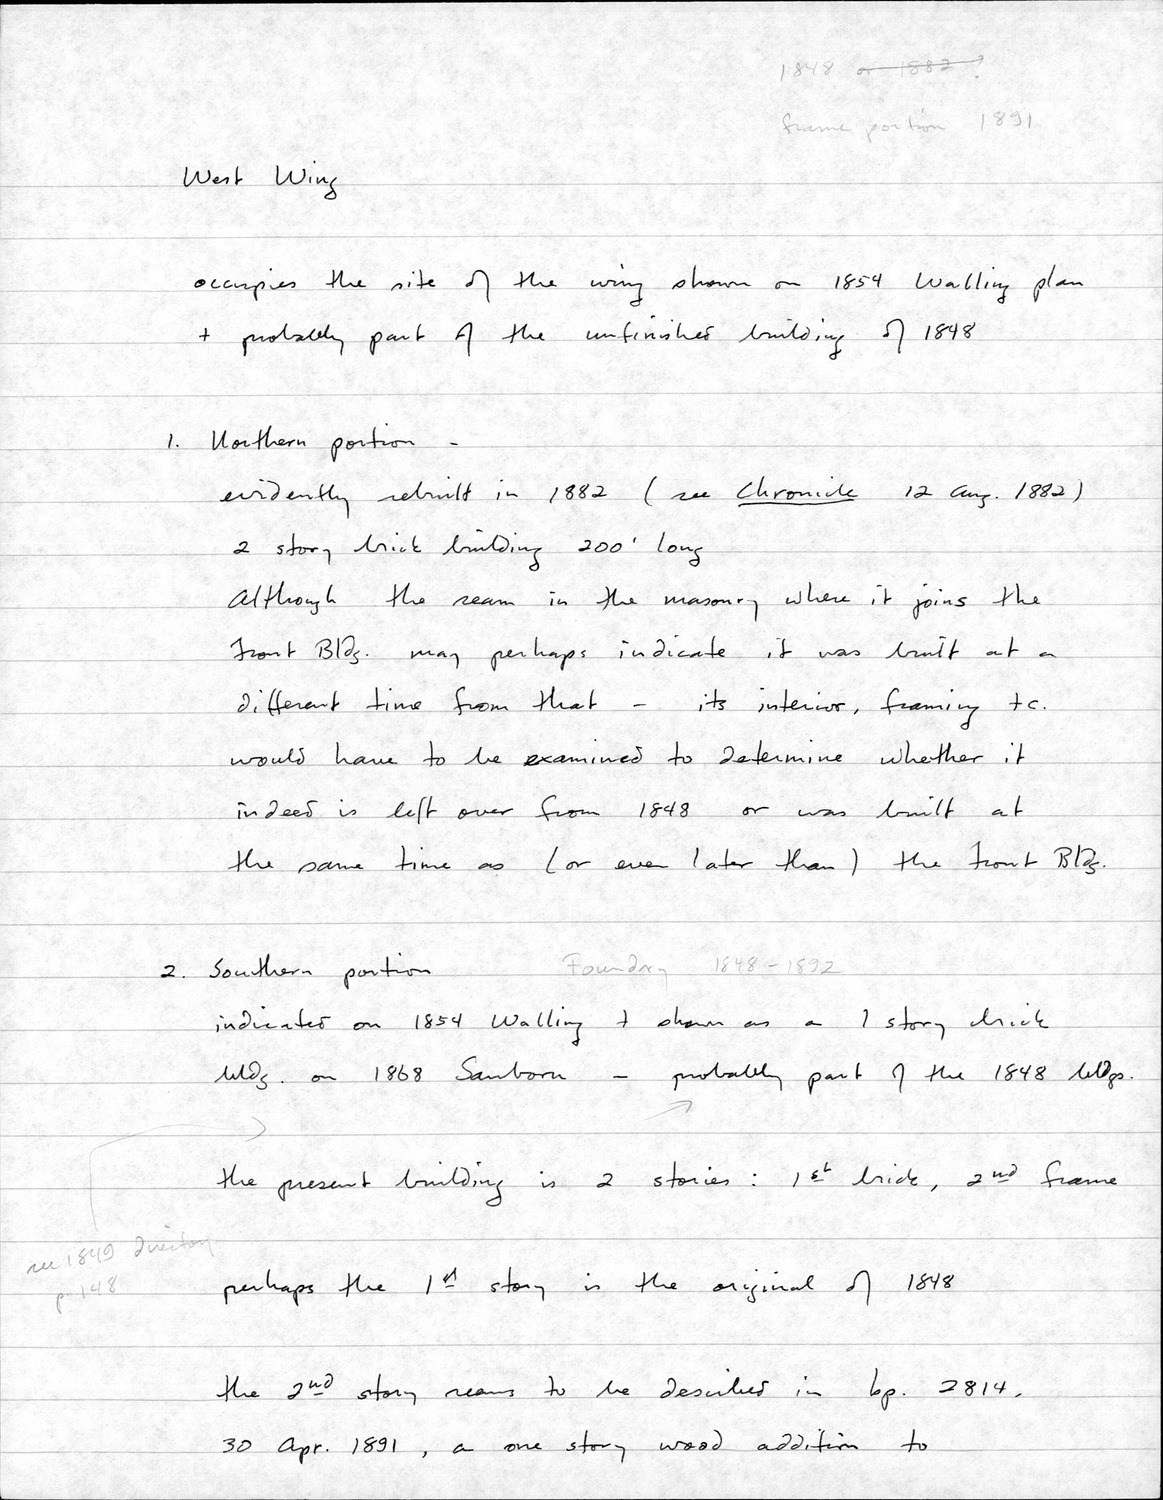 1848 or 1882?
frame portion 1891
West Wing
occupies the site of the wing shown on 1854 Walling plan
+ probably part of the unfinished building of 1848
1. Northern portion -
evidently rebuilt in 1882 (see Chronicle 12 Aug. 1882)
2 story brick building 200' long
Although the seam in the masonry where it joins the
Front Bldg. may perhaps indicate it was built at a
different time from that - its interior, framing +c.
would have to be examined to determine whether it
indeed is left over from 1848 or was built at
the same time as (or even later than) the Front Bldg.
2. Southern portion Foundry 1848-1892
indicated on 1854 Walling + shown as a 1 story brick
bldg. on 1868 Sanborn - probably part of the 1848 bldgs.
the present building is 2 stories: 1st brick, 2nd frame
see 1849 directory
p. 148
perhaps the 1st story is the original of 1848
the 2nd story seems to be described in bp. 2814,
30 Apr. 1891, a one story wood addition to